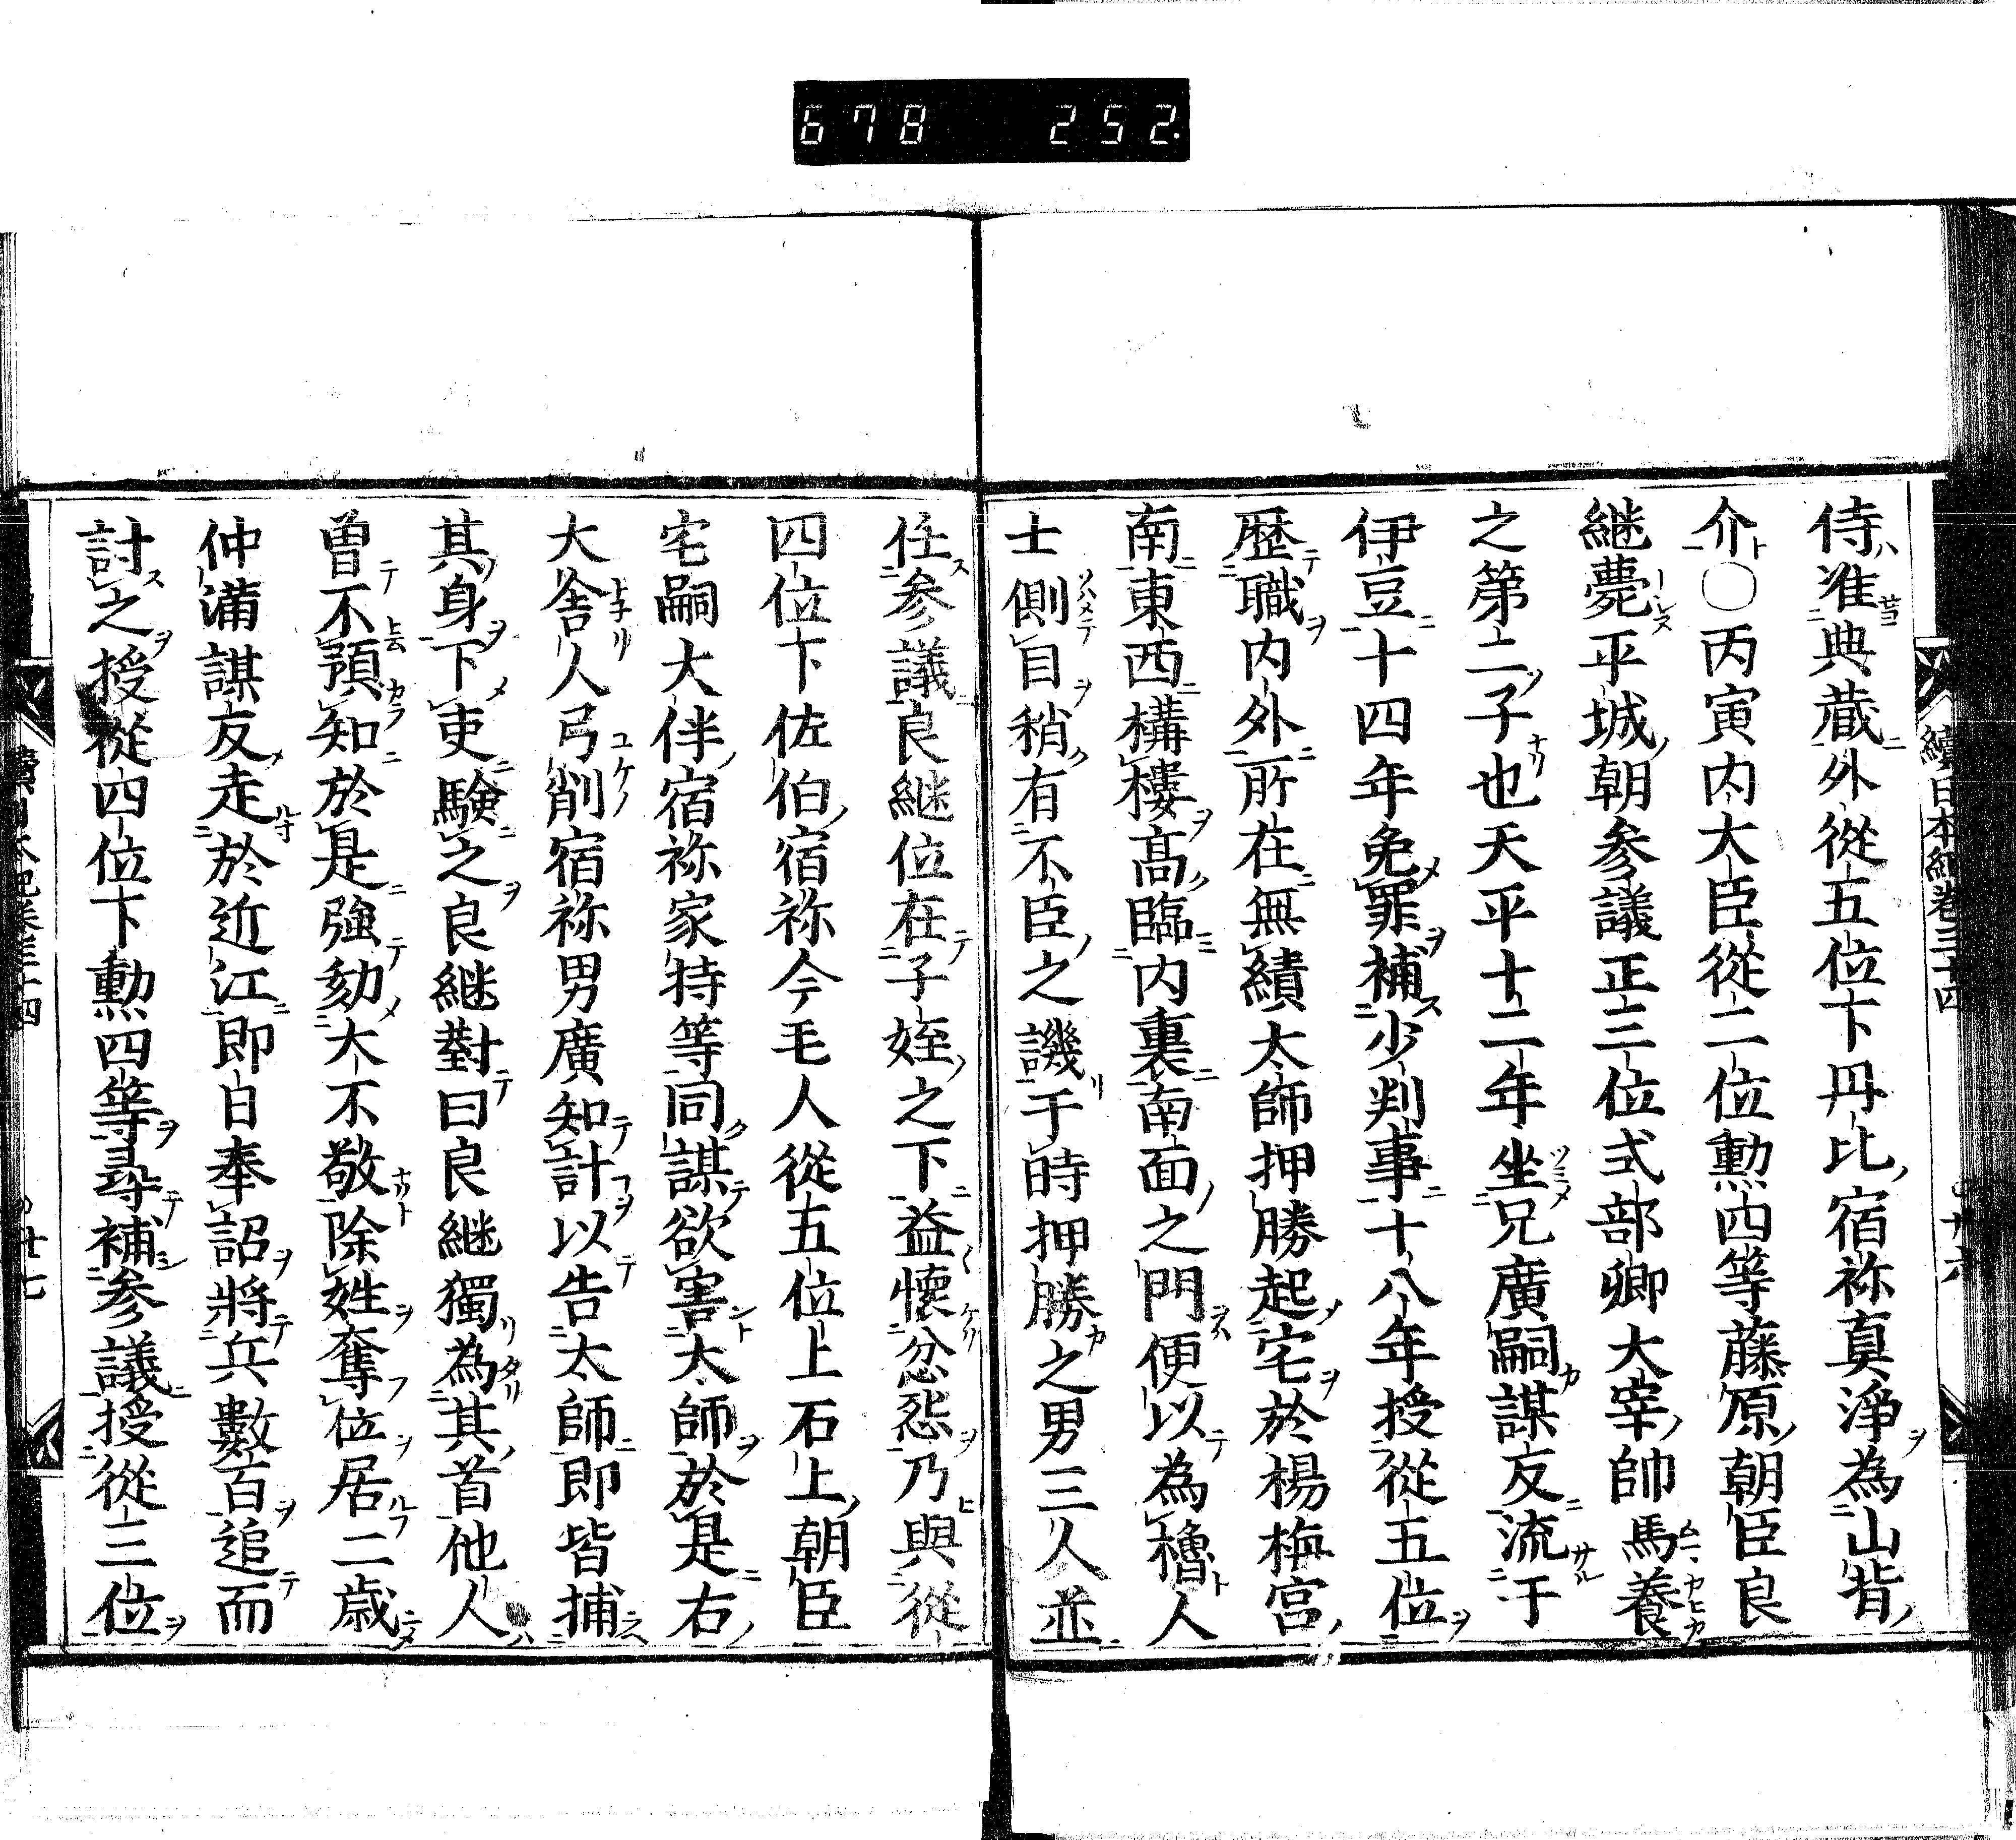 678 252.
續日本紀卷三十四
侍准典蔵外從五位下丹比宿祢真淨為山背
介○丙寅内大臣從二位勲四等藤原朝臣良
継薨平城朝参議正三位式部卿大宰帥馬養
之第二子也天平十二年坐兄廣嗣謀反流于
伊豆十四年免罪補少判事十八年授從五位
歴職内外所在無績太師押勝起宅於楊梅宮
南東西構樓髙臨内裏南面之門便以為櫓人
士側目稍有不臣之譏于時押勝之男三人並
任参議良継位在子姪之下益懐忿怨乃與從
四位下佐伯宿祢今毛人從五位上石上朝臣
宅嗣大伴宿祢家持等同謀欲害太師於是右
大舎人弓削宿祢男廣知計以告太師即皆捕
其身下吏験之良継對曰良継獨為其首他人
曽不預知於是強劾大不敬除姓奪位居二歳
仲満謀反走於近江即日奉詔將兵數百追而
討之授從四位下勲四等尋補参議授從三位